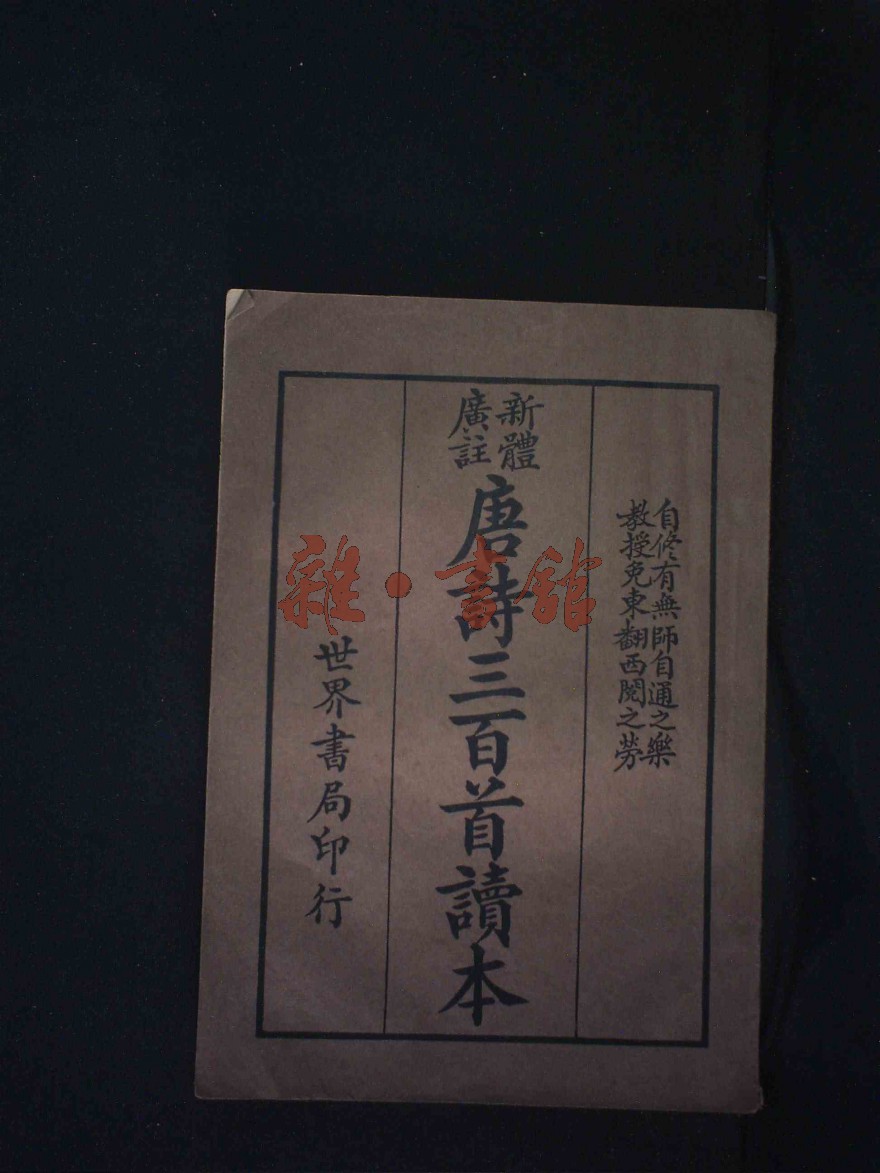 自修有無師自通之樂
教授免東翻西閱之勞
新體
廣註
唐詩三百首讀本
世界書局印行
雜·書館